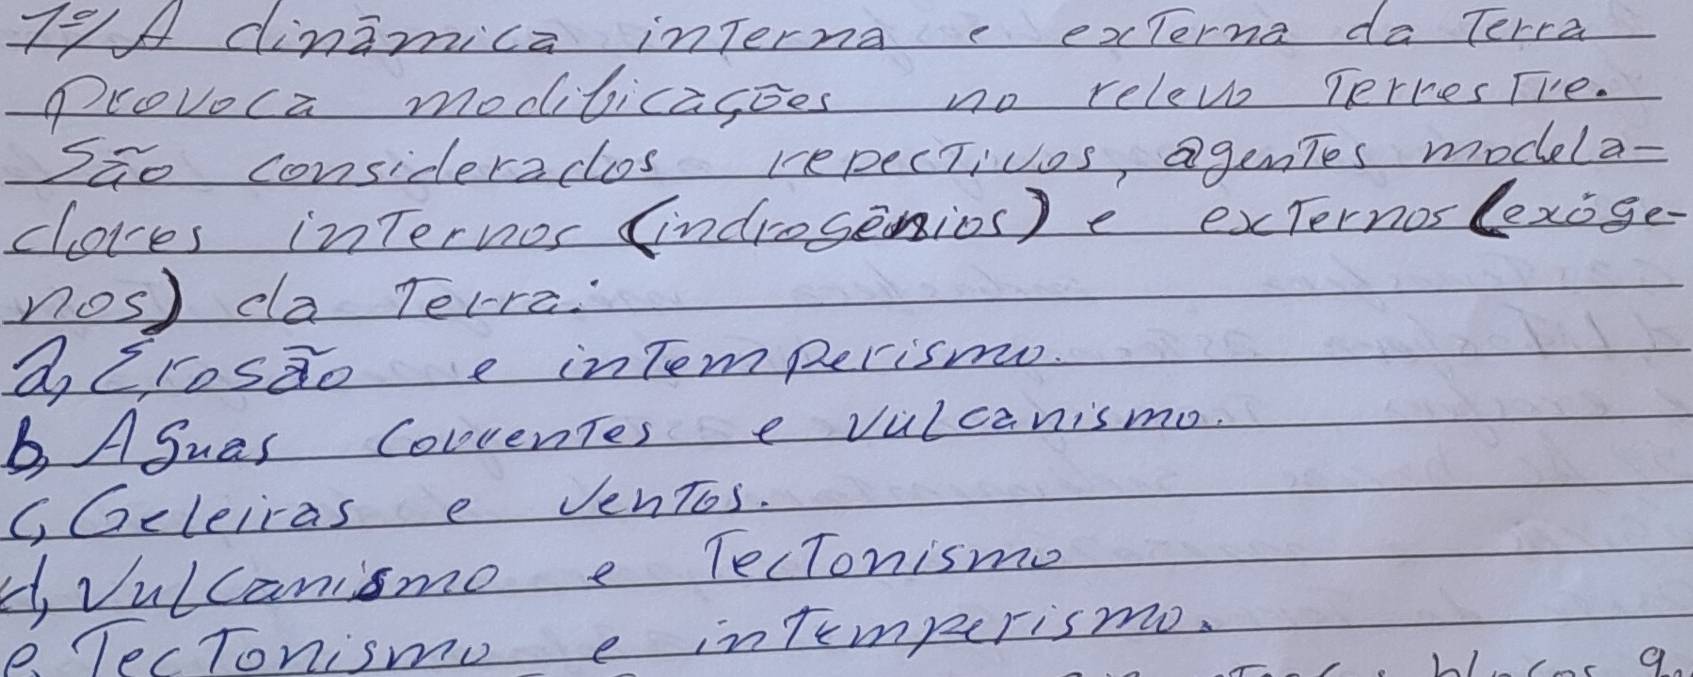 1º/ A dinâmica interna e externa da Terra
Provoca modificações no relevo Terrestre.
São considerados repectivos, agentes modela-
dores internos (indrogênios) e externos (exóge-
nos) da Terra:
a, Erosão e intemperismo.
b, Aguas Correntes e Vulcanismo.
c, Geleiras e Ventos.
d, Vulcanismo e Tectonismo
e, Tectonismo e intemperismo.
blocos